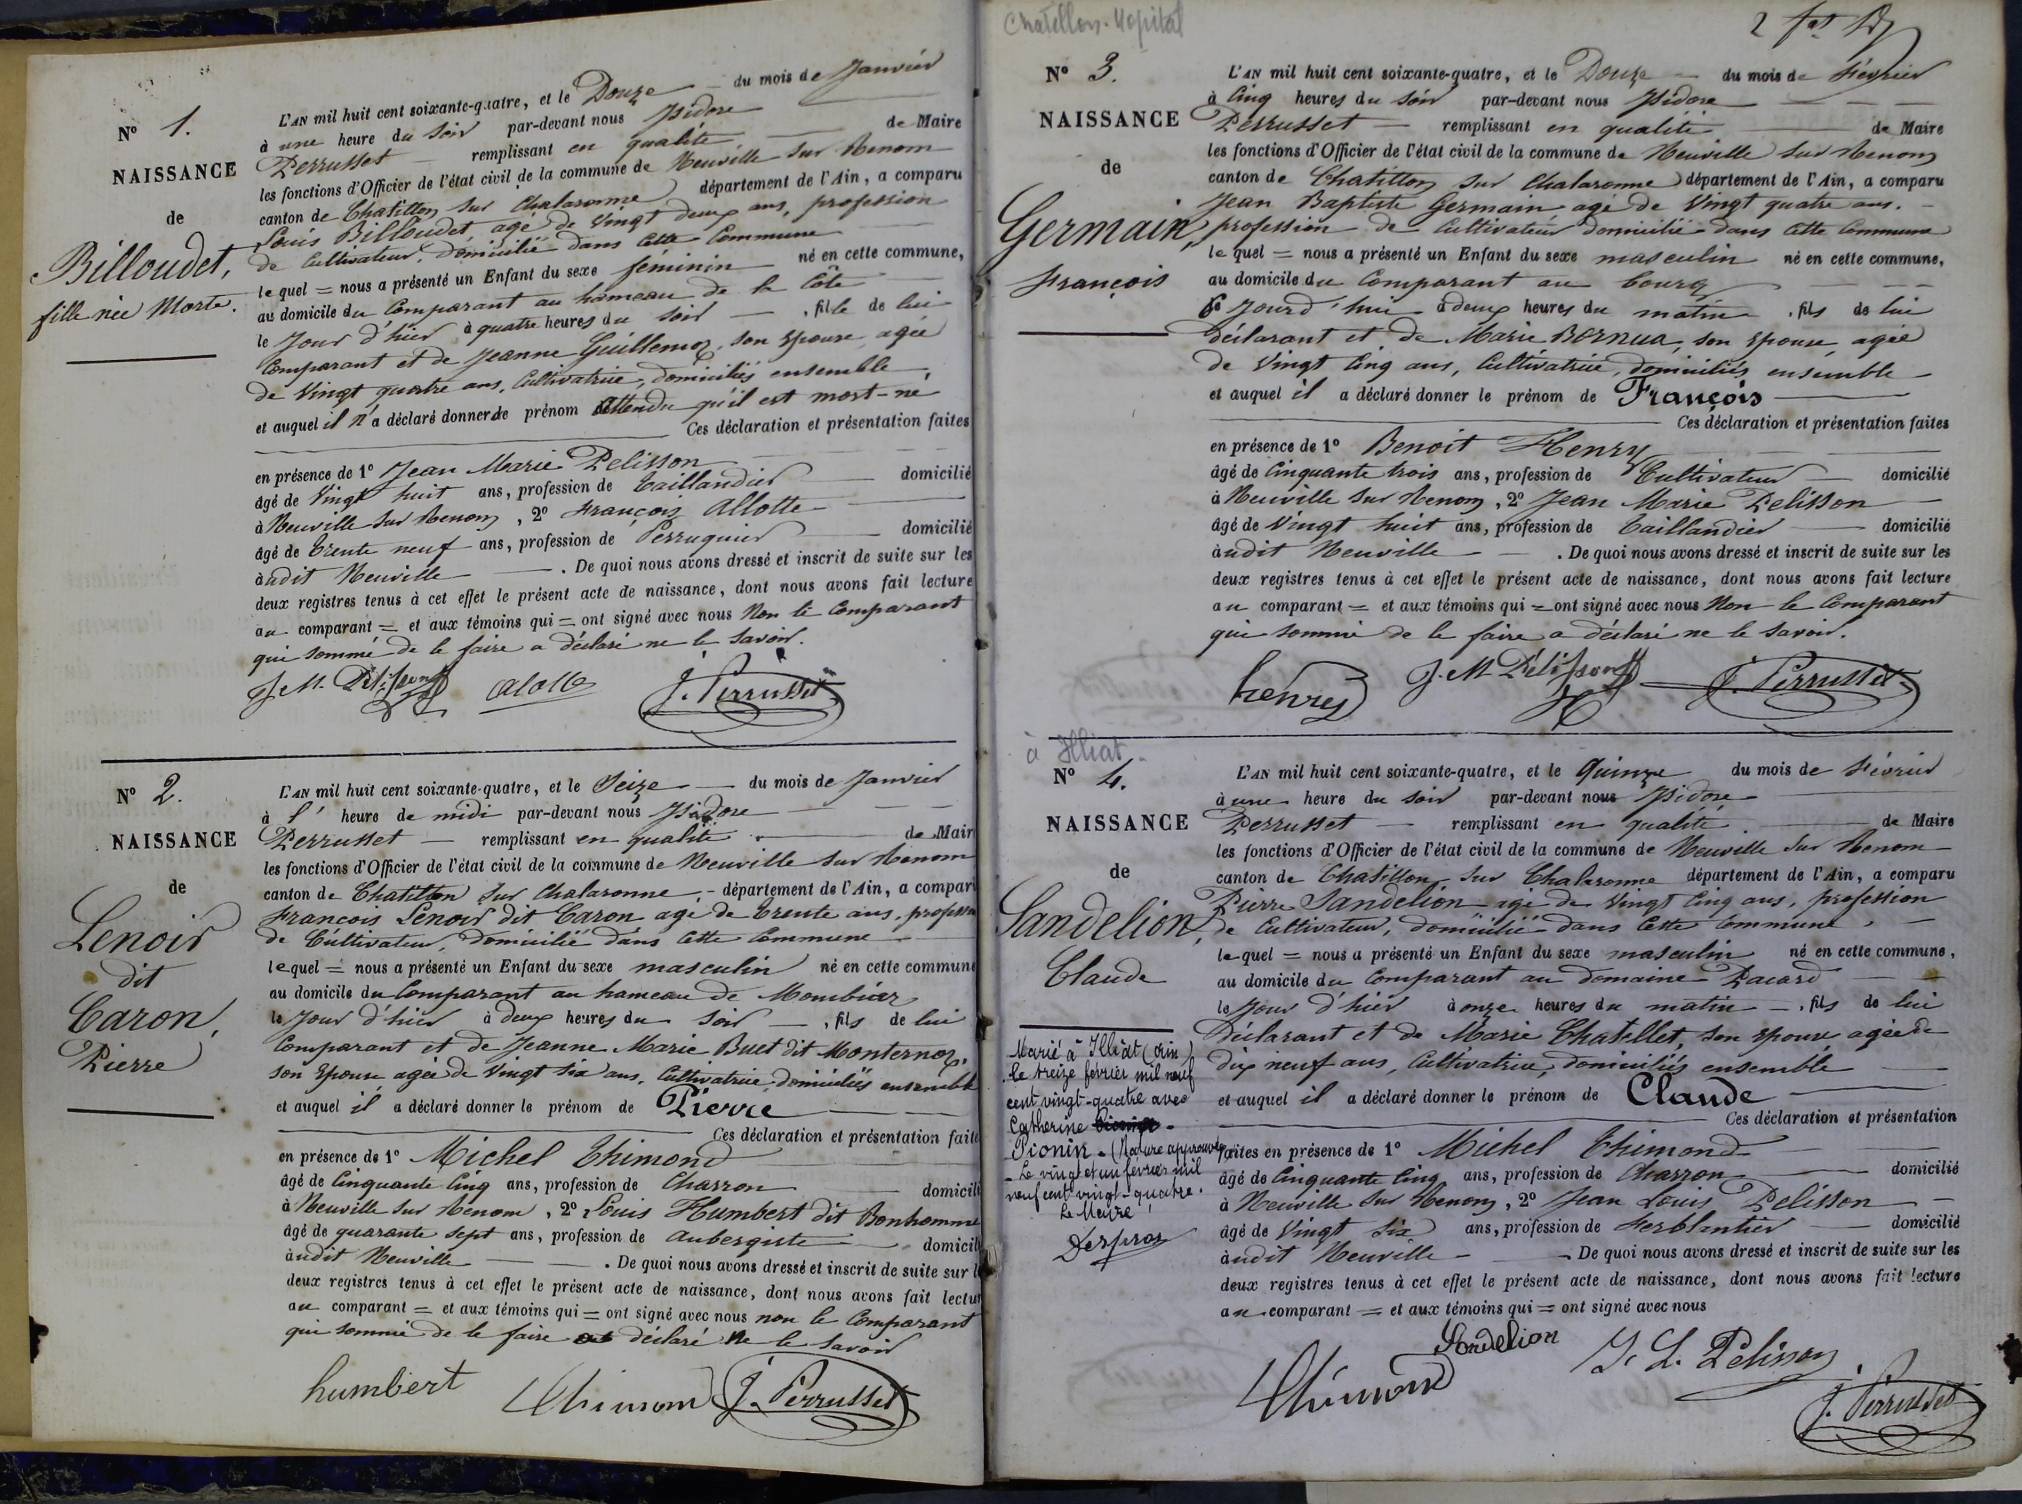 N° 1.
NAISSANCE
de
Billoudet,
fille née Morte.
L'AN mil huit cent soixante-quatre, et le Douze du mois de Janvier
à une heure du soir par-devant nous Isidore
Perrusset remplissant en qualité de Maire
les fonctions d'Officier de l'état civil de la commune de Neuville sur Renom
canton de Chatillon sur Chalaronne département de l'Ain, a comparu
Louis Billoudet agé de vingt deux ans, profession
de Cultivateur, domicilié dans cette Commune
lequel = nous a présenté un Enfant du sexe féminin né en cette commune,
au domicile du Comparant au hameau de la Côte
le Jour d'hier à quatre heures du soir , fille de lui
Comparant et de Jeanne Guillemoz, son Epouse, agée
de Vingt quatre ans, Cultivatrice, domiciliés ensemble,
et auquel il n'a déclaré donner de prénom attendu qu'il est mort-né
Ces déclaration et présentation faites
en présence de 1° Jean Marie Pelisson
âgé de Vingt huit ans, profession de Taillandier domicilié
à Neuville sur Renom, 2° François Allotte
âgé de Trente neuf ans, profession de Perruquier domicilié
àudit Neuville . De quoi nous avons dressé et inscrit de suite sur les
deux registres tenus à cet effet le présent acte de naissance, dont nous avons fait lecture
au comparant = et aux témoins qui = ont signé avec nous Non le Comparant
qui sommé de le faire a déclaré ne le savoir.
J. M. Pélisson alotte J. Perrusset
N° 2.
NAISSANCE
de
Lenoir
dit
Caron,
Pierre
L'AN mil huit cent soixante-quatre, et le Seize du mois de Janvier
à l' heure de midi par-devant nous Isidore
Perrusset remplissant en qualité de Mair
les fonctions d'Officier de l'état civil de la commune de Neuville sur Renom
canton de Chatillon sur Chalaronne, département de l'Ain, a compar
François Lenoir dit Caron agé de Trente ans, profession
de Cultivateur, domicilié dans cette Commune
lequel = nous a présenté un Enfant du sexe masculin né en cette commune
au domicile du Comparant au hameau de
le Jour d'hier à deux heures du soir , fils de lui
Comparant et de Jeanne Marie Buet dit Monternoz,
son Epouse agée de Vingt six ans, Cultivatrice, domiciliés ensemble
et auquel il a déclaré donner le prénom de Pierre
Ces déclaration et présentation faite
en présence de 1° Michel Thimond
âgé de Cinquante Cinq ans, profession de Charron domicili
à Neuville sur Renom, 2° Louis Humbert dit Bonhomme
âgé de quarante sept ans, profession de aubergiste domicili
àudit Neuville . De quoi nous avons dressé et inscrit de suite sur l
deux registres tenus à cet effet le présent acte de naissance, dont nous avons fait lectur
au comparant = et aux témoins qui = ont signé avec nous non le Comparant
qui sommé de le faire a déclaré ne le savoir
humbert Thimond J. Perrusset
Chatillon-Hopital
N° 3.
NAISSANCE
de
Germain,
François
L'AN mil huit cent soixante-quatre, et le Douze du mois de Février
à Cinq heures du soir par-devant nous Isidore
Perrusset remplissant en qualité de Maire
les fonctions d'Officier de l'état civil de la commune de Neuville sur Renom
canton de Chatillon sur Chalaronne département de l'Ain, a comparu
Jean Baptiste Germain agé de Vingt quatre ans,
profession de Cultivateur domicilié dans cette Commune
lequel = nous a présenté un Enfant du sexe masculin né en cette commune,
au domicile du Comparant au bourg
Ce Jourd'hui à deux heures du matin , fils de lui
déclarant et de Marie Bernua, son Epouse, agée
de Vingt Cinq ans, Cultivatrice, domiciliés ensemble
et auquel il a déclaré donner le prénom de François
Ces déclaration et présentation faites
en présence de 1° Benoit Henry
âgé de Cinquante trois ans, profession de Cultivateur domicilié
à Neuville sur Renom, 2° Jean Marie Pelisson
âgé de Vingt huit ans, profession de Taillandier domicilié
àudit Neuville . De quoi nous avons dressé et inscrit de suite sur les
deux registres tenus à cet effet le présent acte de naissance, dont nous avons fait lecture
au comparant = et aux témoins qui = ont signé avec nous Non le Comparant
qui sommé de le faire a déclaré ne le savoir.
henry J. M Pélisson J. Perrusset
à Illiat
N° 4.
NAISSANCE
de
Sandelion,
Claude
Marié à Illiat (Ain)
le treize février mil neuf
cent vingt-quatre avec
Catherine
Pionin. (Rature approuvée)
Le vingt et un février mil
neuf cent vingt-quatre.
Le Maire,
L'AN mil huit cent soixante-quatre, et le Quinze du mois de Février
à une heure du soir par-devant nous Isidore
Perrusset remplissant en qualité de Maire
les fonctions d'Officier de l'état civil de la commune de Neuville sur Renom
canton de Chatillon sur Chalaronne département de l'Ain, a comparu
Pierre Sandelion agé de Vingt Cinq ans, profession
de Cultivateur, domicilié dans cette Commune,
lequel = nous a présenté un Enfant du sexe masculin né en cette commune,
au domicile du Comparant au domaine Pacard
le Jour d'hier à onze heures du matin , fils de lui
Déclarant et de Marie Chatillet, son Epouse agée de
dix neuf ans, Cultivatrice, domiciliés ensemble
et auquel il a déclaré donner le prénom de Claude
Ces déclaration et présentation
faites en présence de 1° Michel Thimond
âgé de Cinquante Cinq ans, profession de Charron domicilié
à Neuville sur Renom, 2° Jean Louis Pelisson
âgé de Vingt Six ans, profession de Ferblantier domicilié
àudit Neuville . De quoi nous avons dressé et inscrit de suite sur les
deux registres tenus à cet effet le présent acte de naissance, dont nous avons fait lecture
au comparant = et aux témoins qui = ont signé avec nous
Thimond Sandelion J. L. Pelisson
J. Perrusset